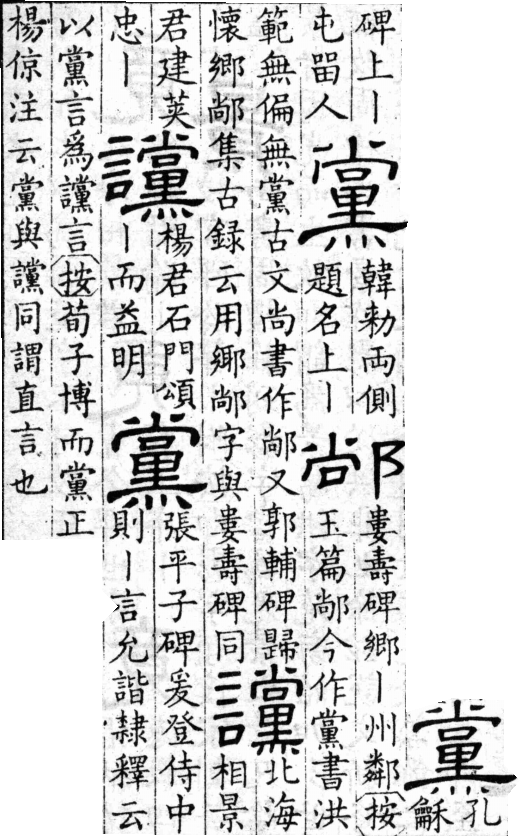 黨
孔
龢
碑上丨
屯㽞人
黨
韓勑兩側
題名上丨
䣊
婁壽碑鄉丨州鄰按
玉篇䣊今作黨書洪
範無偏無黨古文尚書作䣊又郭輔碑歸
懷鄉䣊集古錄云用鄉䣊字與婁壽碑同
讜
北海
相景
君建莢
忠丨
讜
楊君石門頌
丨而益明
黨
張平子碑爰登侍中
則丨言允諧隸釋云
以黨言爲讜言按荀子博而黨正
楊倞注云黨與讜同謂直言也